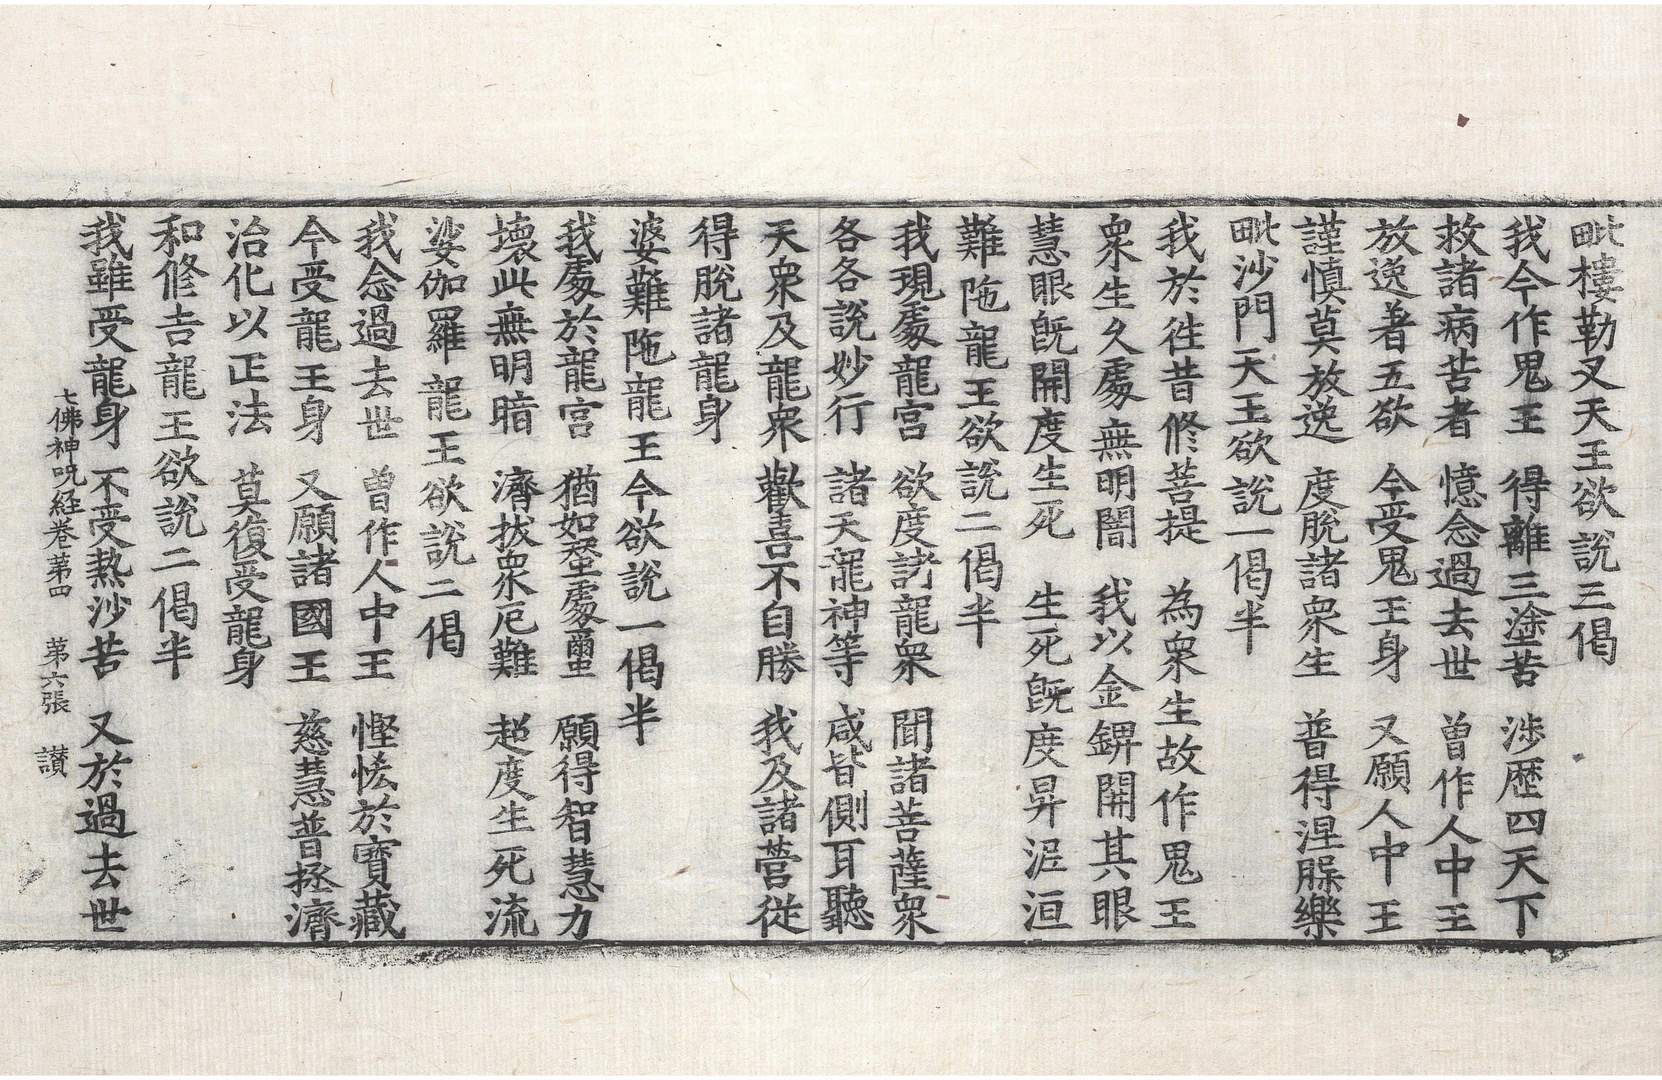 毗樓勒叉天王欲說三偈
我今作鬼王　得離三塗苦　涉歷四天下
救諸病苦者　憶念過去世　曾作人中王
放逸著五欲　今受鬼王身　又願人中王
謹慎莫放逸　度脫諸衆生　普得涅槃樂
毗沙門天王欲說一偈半
我於往昔修菩提　為衆生故作鬼王
衆生久處無明闇　我以金錍開其眼
慧眼旣開度生死　生死旣度昇泥洹
難陁龍王欲說二偈半
我現處龍宮　欲度諸龍衆　聞諸菩薩衆
各各說妙行　諸天龍神等　咸皆側耳聽
天衆及龍衆　歡喜不自勝　我及諸營從
得脫諸龍身
婆難陁龍王今欲說一偈半
我處於龍宮　猶如蠶處蠒　願得智慧力
壞此無明暗　濟拔衆厄難　超度生死流
娑伽羅龍王欲說二偈
我念過去世　曾作人中王　慳悋於寶藏
今受龍王身　又願諸國王　慈慧普拯濟
治化以正法　莫復受龍身
和修吉龍王欲說二偈半
我雖受龍身　不受熱沙苦　又於過去世
七佛神呪経卷第四　第六張　讃